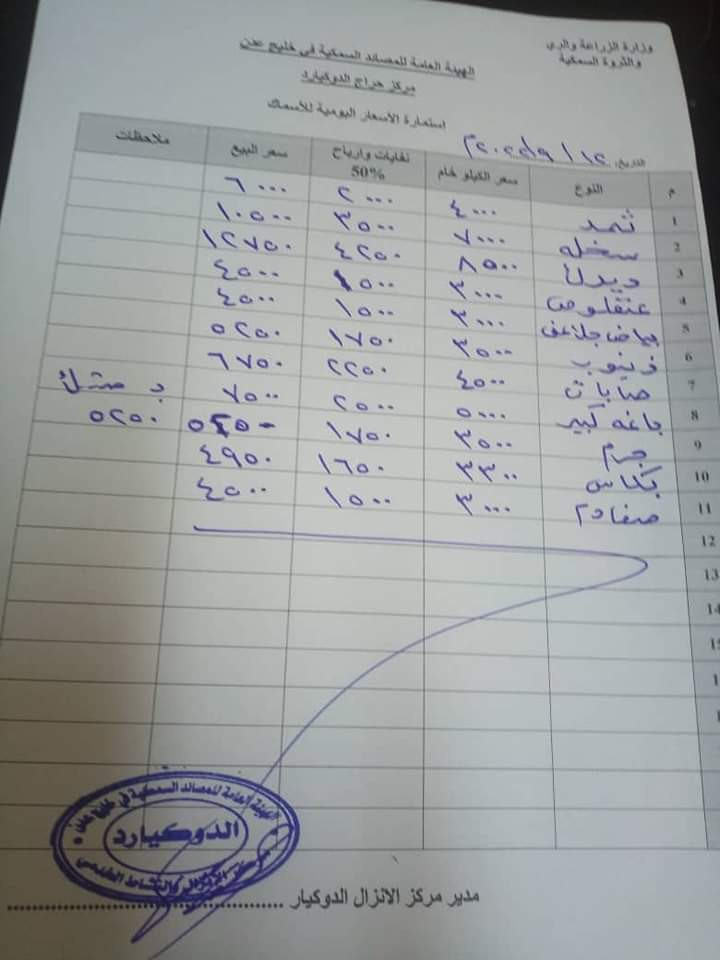 وزارة الزراعة والري
والثروة السمكية
الهيئة العامة للمصائد السمكية في خليج عدن
مركز حراج الدوكيارد
إستمارة الأسعار اليومية للأسماك
التاريخ:
م النوع سعر الكيلو خام نفايات وارباح 50% سعر البيع ملاحظات
1 ثمد ٤٠٠٠ ٢٠٠٠ ٦٠٠٠
2 سخله ٧٠٠٠ ٣٥٠٠ ١٠٥٠٠
3 ديرك ٨٥٠٠ ٤٢٥٠ ١٢٧٥٠
4 عنفلوص ٣٠٠٠ ١٥٠٠ ٤٥٠٠
5 ٣٠٠٠ ١٥٠٠ ٤٥٠٠
6 زينوب ٣٥٠٠ ١٧٥٠ ٥٢٥٠
7 ٤٥٠٠ ٢٢٥٠ ٦٧٥٠
8 باغه كبير ٥٠٠٠ ٢٥٠٠ ٧٥٠٠
9 جرم ٣٥٠٠ ١٧٥٠ ٥٢٥٠ ٥٢٥٠
10 بكاس ٣٣٠٠ ١٦٥٠ ٤٩٥٠
11 ٣٠٠٠ ١٥٠٠ ٤٥٠٠
12
13
14
الهيئة العامة للمصائد السمكية في خليج عدن
الدوكيارد
مدير مركز الانزال الدوكيار